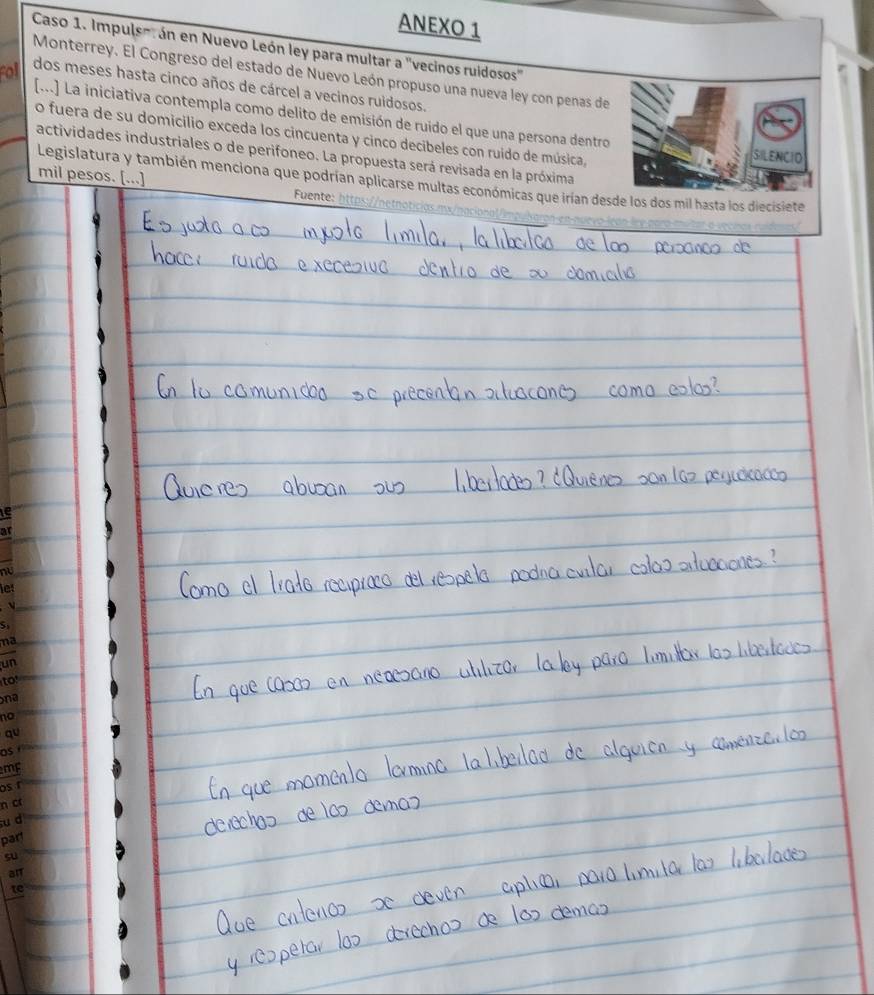 ANEXO 1
Caso 1. Impulsarán en Nuevo León ley para multar a "vecinos ruidosos"
Monterrey. El Congreso del estado de Nuevo León propuso una nueva ley con penas de
dos meses hasta cinco años de cárcel a vecinos ruidosos.
[...] La iniciativa contempla como delito de emisión de ruido el que una persona dentro
o fuera de su domicilio exceda los cincuenta y cinco decibeles con ruido de música,
actividades industriales o de perifoneo. La propuesta será revisada en la próxima
Legislatura y también menciona que podrían aplicarse multas económicas que irían desde los dos mil hasta los diecisiete
mil pesos. [...]
SILENCIO
Fuente: https://netnoticias.mx/nacional/impulsaran-en-nuevo-leon-ley-para-multar-a-vecinos-ruidosos/
Es justo a co limitar, la libertad de las personas de
hacer ruido execesivo dentro de su domicilio
En lo comunidad se precentan situacones como estas?
Quienes abusan sus libertades? ¿Quiénes son las
Como el trato reciproco del respeto podria evitar estas situaciones?
En que casos en necesario utilizar la ley para limitar las libertades
En que momento termina la libertad de alguien y comenzar los
derechos de los demas
Que criterios se deven aplicar para limitar las libertades
y respetar los derechos de los demas